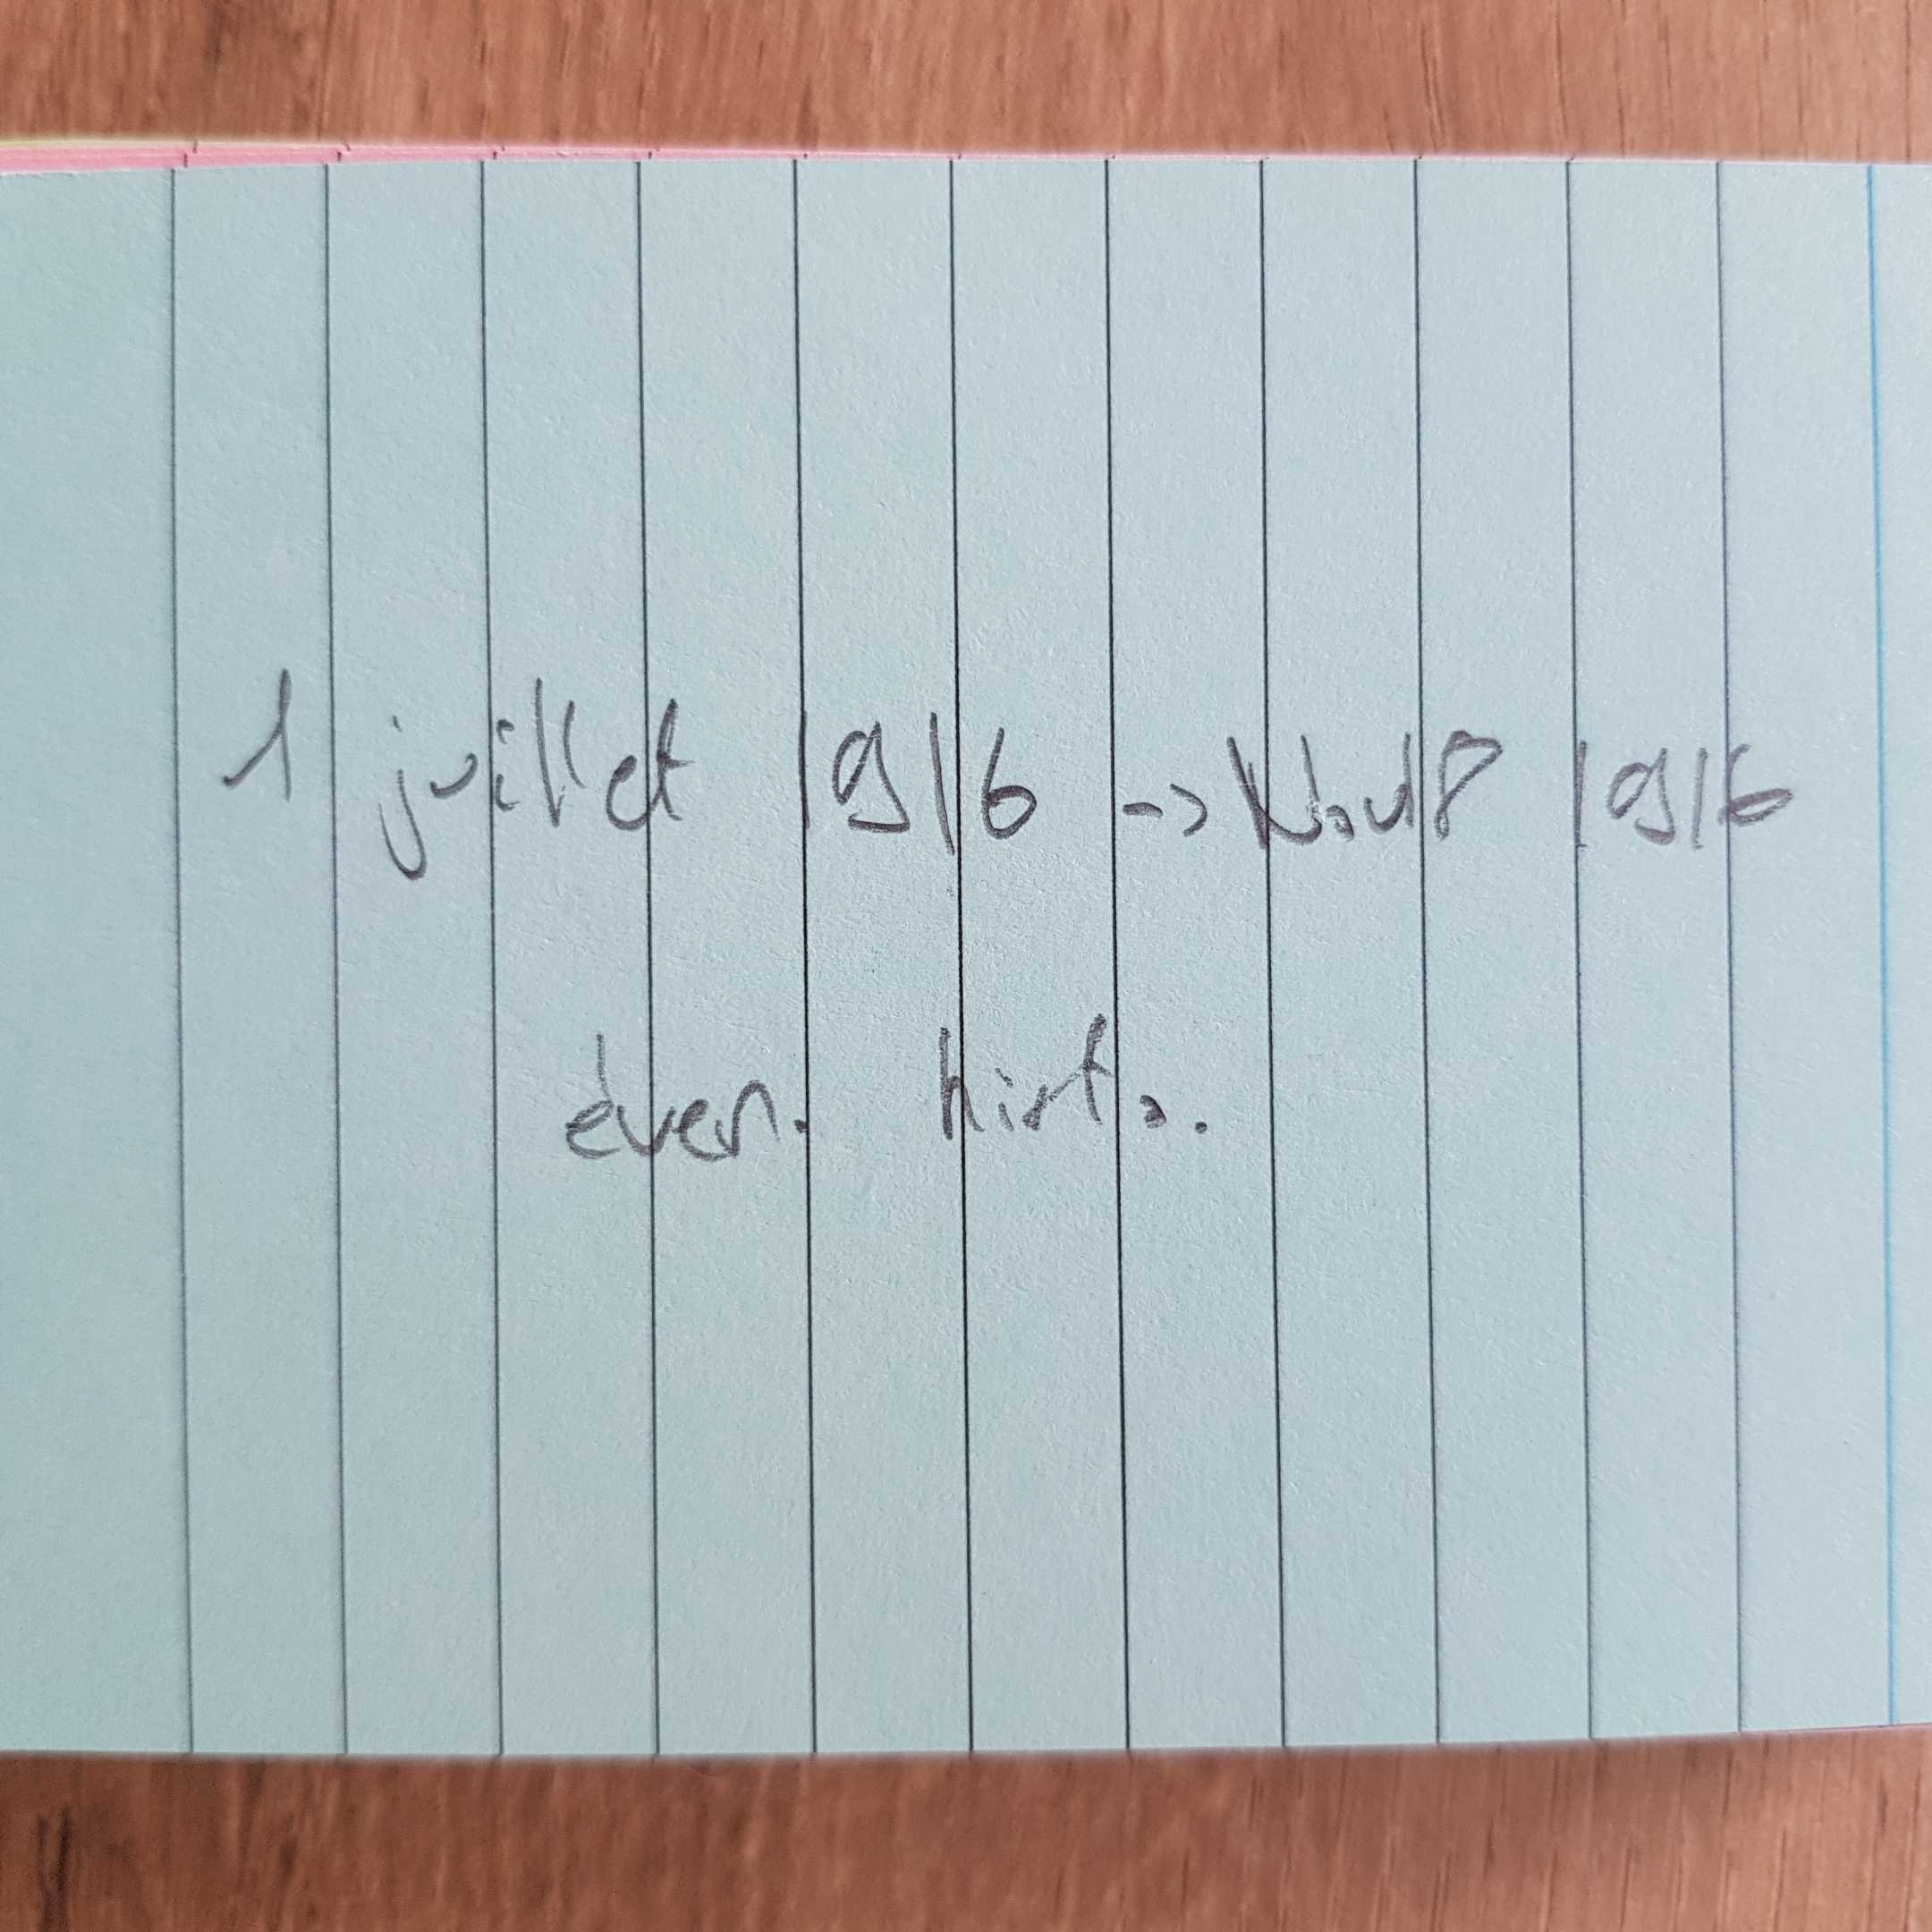 1 juillet 1916 -> Nov 18 1916
éven. histo.